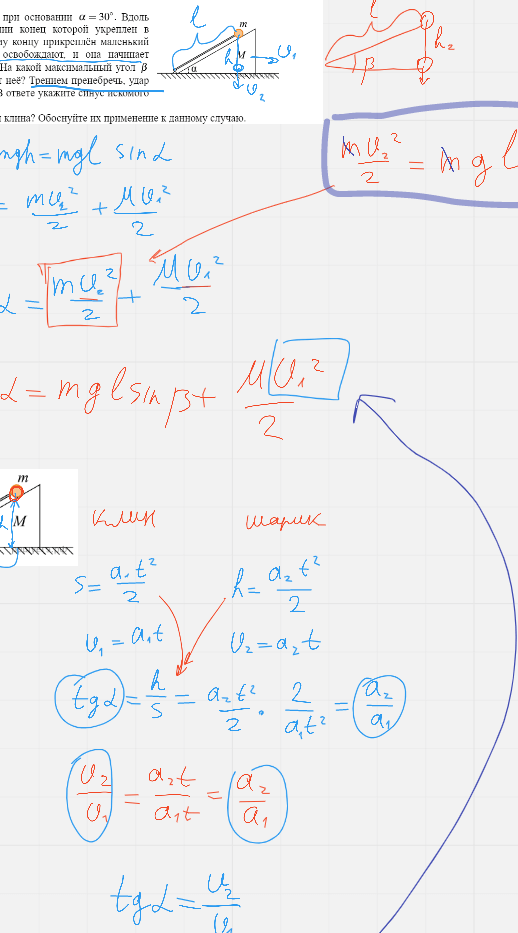 при основании α = 30°. Вдоль
конец которой укреплен в
му концу прикреплён маленький
освобождают, и она начинает
На какой максимальный угол β
т неё? Трением пренебречь, удар
В ответе укажите синус искомого
клина? Обоснуйте их применение к данному случаю.
l
m
h
M
α
υ₁
υ₂
l
h₂
β
mgh = mgl sin α
= mυ₂²/2 + Mυ₁²/2
mυ₂²/2 = mgl
α = mυ₂²/2 + Mυ₁²/2
α = mgl sin β + Mυ₁²/2
m
M
клин шарик
s = a₁t²/2 h = a₂t²/2
υ₁ = a₁t υ₂ = a₂t
tg α = h/s = a₂t²/2 · 2/a₁t² = a₂/a₁
υ₂/υ₁ = a₂t/a₁t = a₂/a₁
tg α = υ₂/υ₁